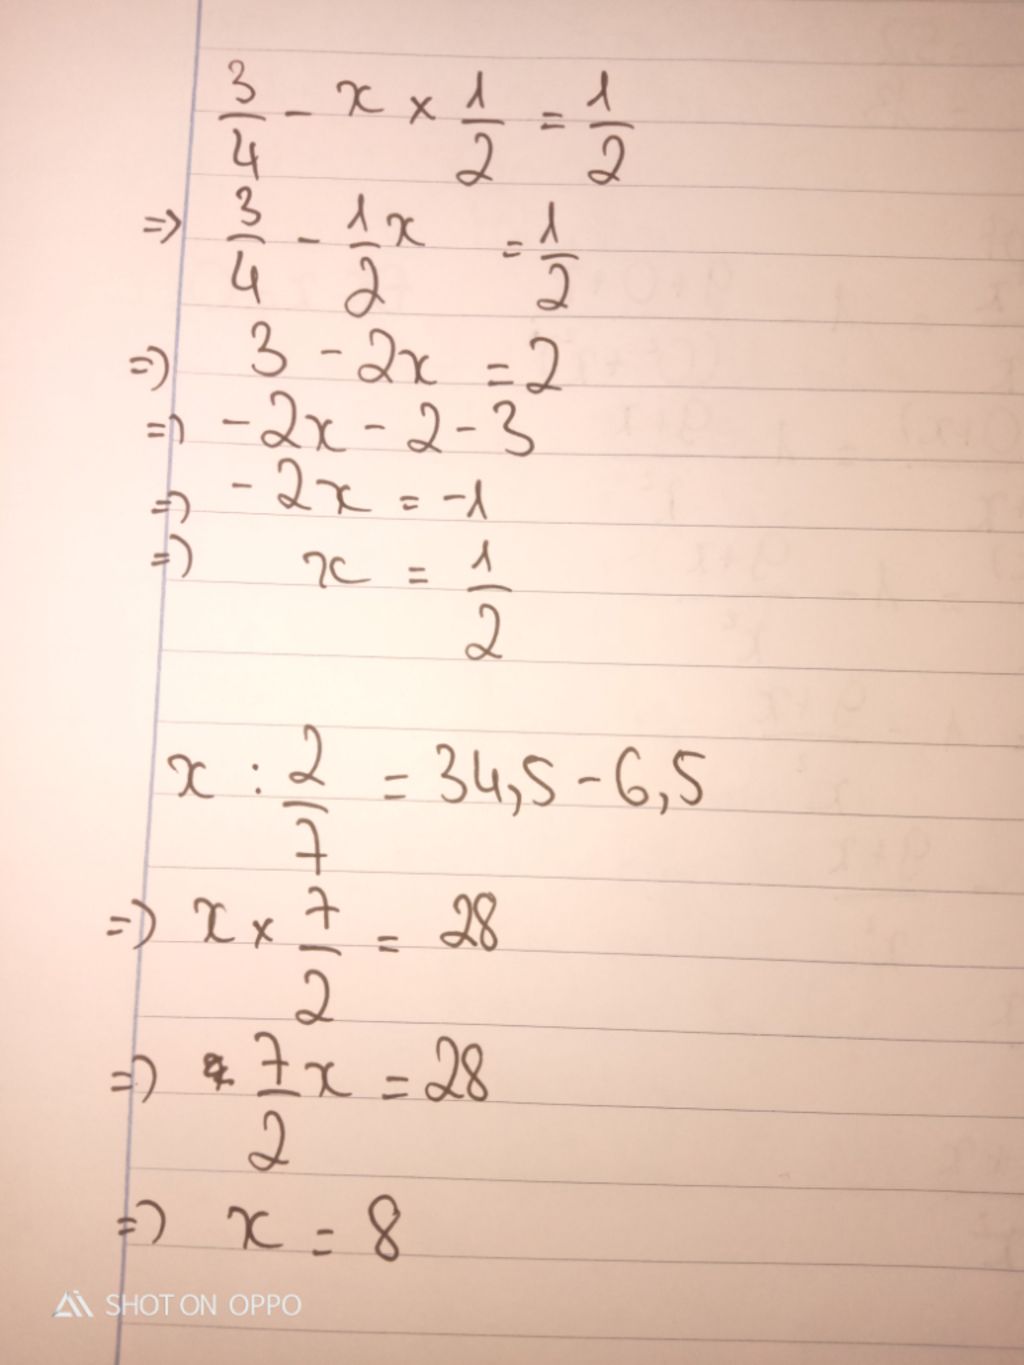 3/4 - x × 1/2 = 1/2
=> 3/4 - 1/2 x = 1/2
=> 3 - 2x = 2
=> - 2x - 2 - 3
=> - 2x = -1
=> x = 1/2
x : 2/7 = 34,5 - 6,5
=> x × 7/2 = 28
=> 7/2 x = 28
=> x = 8
SHOT ON OPPO